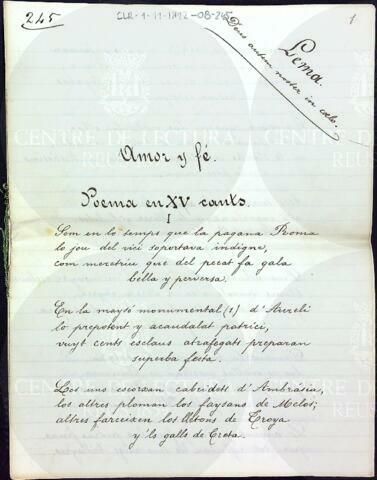 245
CLR-1-11-1912-OB-245
1
Lema.
Deus autem noster in cœlo.
CENTRE DE LECTURA
REUS
Amor y fé.
Poema en XV cants.
I
Som en lo temps que la pagana Roma
lo jou del vici soportava indigne,
com meretriu que del pecat fa gala
bella y perversa.
En la maysó monumental (1) d'Aureli
lo prepotent y acaudalat patrici,
vuyt cents esclaus atrafegats preparan
superba festa.
Los uns escorxan cabridets d'Ambrasia,
los altres ploman los faysans de Melos;
altres farceixen los llatons de Troya
y'ls galls de Creta.